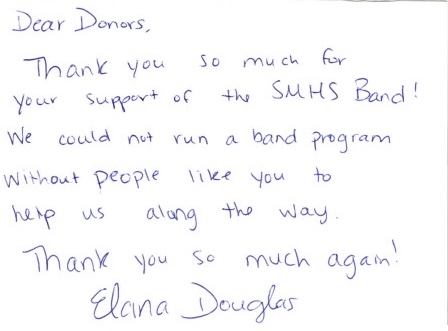 Dear Donors,
Thank you so much for
your support of the SMHS Band!
We could not run a band program
without people like you to
help us along the way.
Thank you so much again!
Elana Douglas